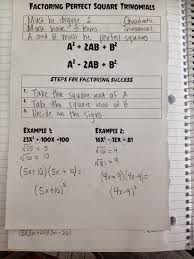 FACTORING PERFECT SQUARE TRINOMIALS
Must be degree 2
Must have 3 terms
A and B must be perfect squares
Quadratic
trinomial
A² + 2AB + B²
A² - 2AB + B²
STEPS FOR FACTORING SUCCESS
1. Take the square root of A
2. Take the square root of B
3. Decide on the signs
EXAMPLE 1:
25X² + 100X + 100
√25 = 5
√100 = 10
(5x+10)(5x+10)=
(5x+10)²
EXAMPLE 2:
16X² - 72X + 81
√16 = 4
√81 = 9
(4x-9)(4x-9)=
(4x-9)²